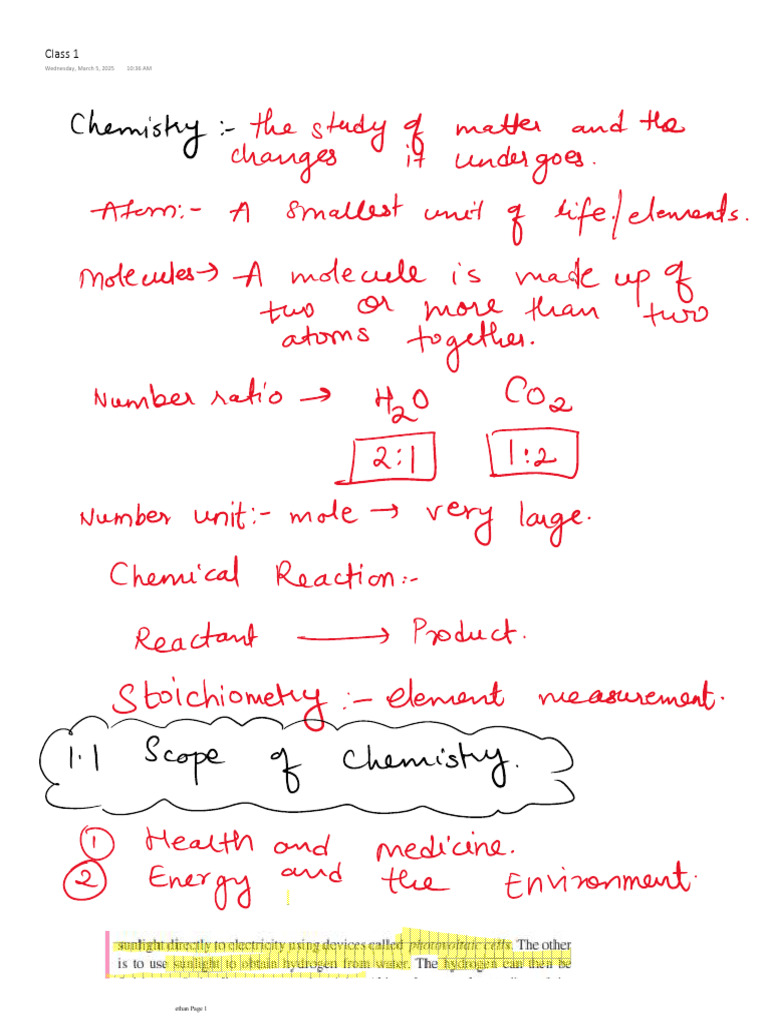 Class 1
Wednesday, March 5, 2025 10:36 AM
Chemistry :- the study of matter and the
changes it undergoes.
Atom:- A smallest unit of life/elements.
Molecules→ A molecule is made up of
two or more than two
atoms together.
Number ratio → H2O CO2
2:1 1:2
Number unit:- mole → very large.
Chemical Reaction:-
Reactant → Product.
Stoichiometry :- element measurement.
1.1 Scope of Chemistry.
① Health and medicine.
② Energy and the Environment.
sunlight directly to electricity using devices called photovoltaic cells. The other
is to use sunlight to obtain hydrogen from water. The hydrogen can then be
ethan Page 1